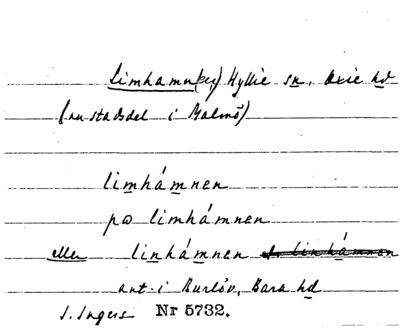 Limhamn(en) Hyllie sn, Oxie hd
(nu stadsdel i Malmö)
limhámnen
på limhámnen
eller linhámnen
ant. i Burlöv, Bara hd
I. Ingers Nr 5732.